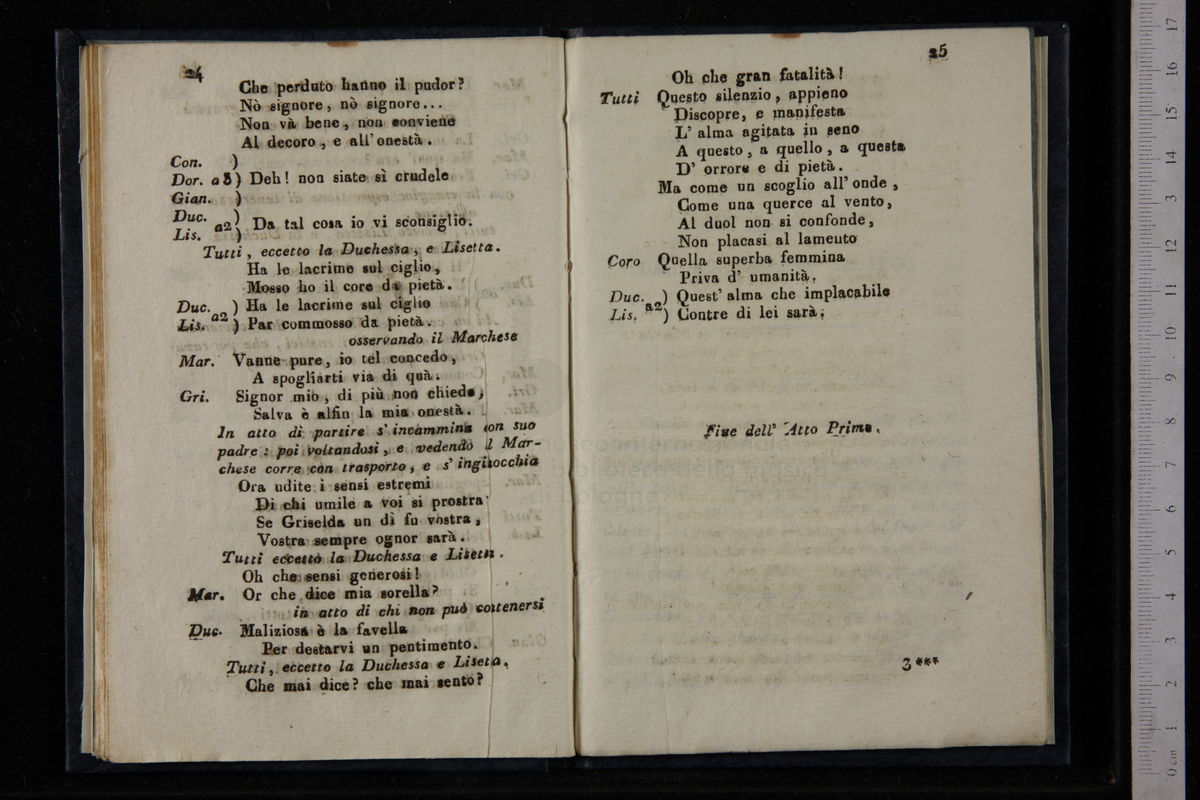 24
Che perduto hanno il pudor?
Nò signore, nò signore...
Non và bene, non conviene
Al decoro, e all' onestà.
Con. )
Dor. a 3 ) Deh! non siate sì crudele
Gian. )
Duc. )
a2 ) Da tal cosa io vi sconsiglio.
Lis. )
Tutti, eccetto la Duchessa, e Lisetta.
Ha le lacrime sul ciglio,
Mosso ho il core da pietà.
Duc. ) Ha le lacrime sul ciglio
a2
Lis. ) Par commosso da pietà.
osservando il Marchese
Mar. Vanne pure, io tel concedo,
A spogliarti via di quà.
Gri. Signor mio, di più non chiedo,
Salva è alfin la mia onestà.
In atto di partire s' incammina con suo
padre: poi voltandosi, e vedendo il Mar-
chese corre con trasporto, e s' inginocchia
Ora udite i sensi estremi
Di chi umile a voi si prostra
Se Griselda un dì fu vostra,
Vostra sempre ognor sarà.
Tutti eccetto la Duchessa e Lisetta.
Oh che sensi generosi!
Mar. Or che dice mia sorella?
in atto di chi non può contenersi
Duc. Maliziosa è la favella
Per destarvi un pentimento.
Tutti, eccetto la Duchessa e Liseta.
Che mai dice? che mai sento?
25
Oh che gran fatalità!
Tutti Questo silenzio, appieno
Discopre, e manifesta
L' alma agitata in seno
A questo, a quello, a questa
D' orrore e di pietà.
Ma come un scoglio all' onde,
Come una querce al vento,
Al duol non si confonde,
Non placasi al lamento
Coro Quella superba femmina
Priva d' umanità.
Duc. ) Quest' alma che implacabile
a2
Lis. ) Contre di lei sarà.
Fine dell' Atto Primo.
3 ***
museo internazionale
e biblioteca della musica
di bologna
0 cm 1 2 3 4 5 6 7 8 9 10 11 12 13 14 15 16 17